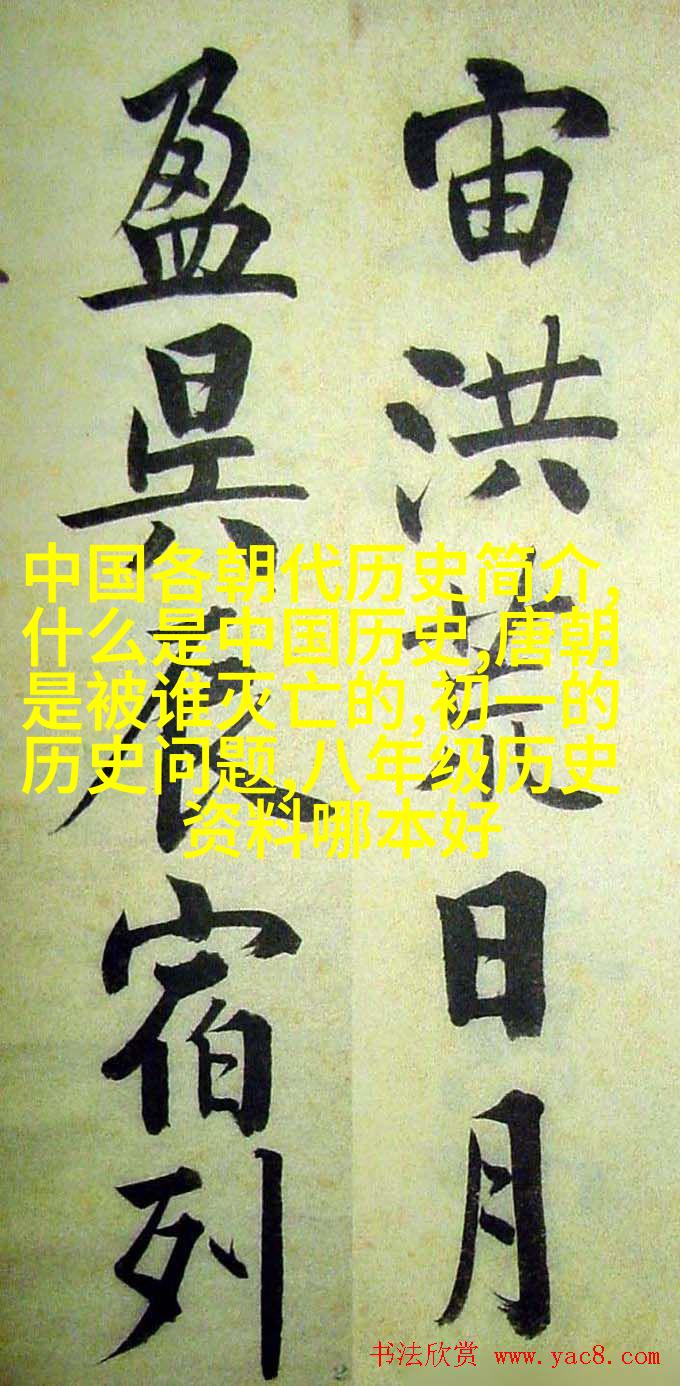 宙洪荒日月
盈昃辰宿列
中国各朝代历史简介,
什么是中国历史,唐朝
是被谁灭亡的,初一的
历史问题,八年级历史
资料哪本好
书法欣赏 www.yac8.com